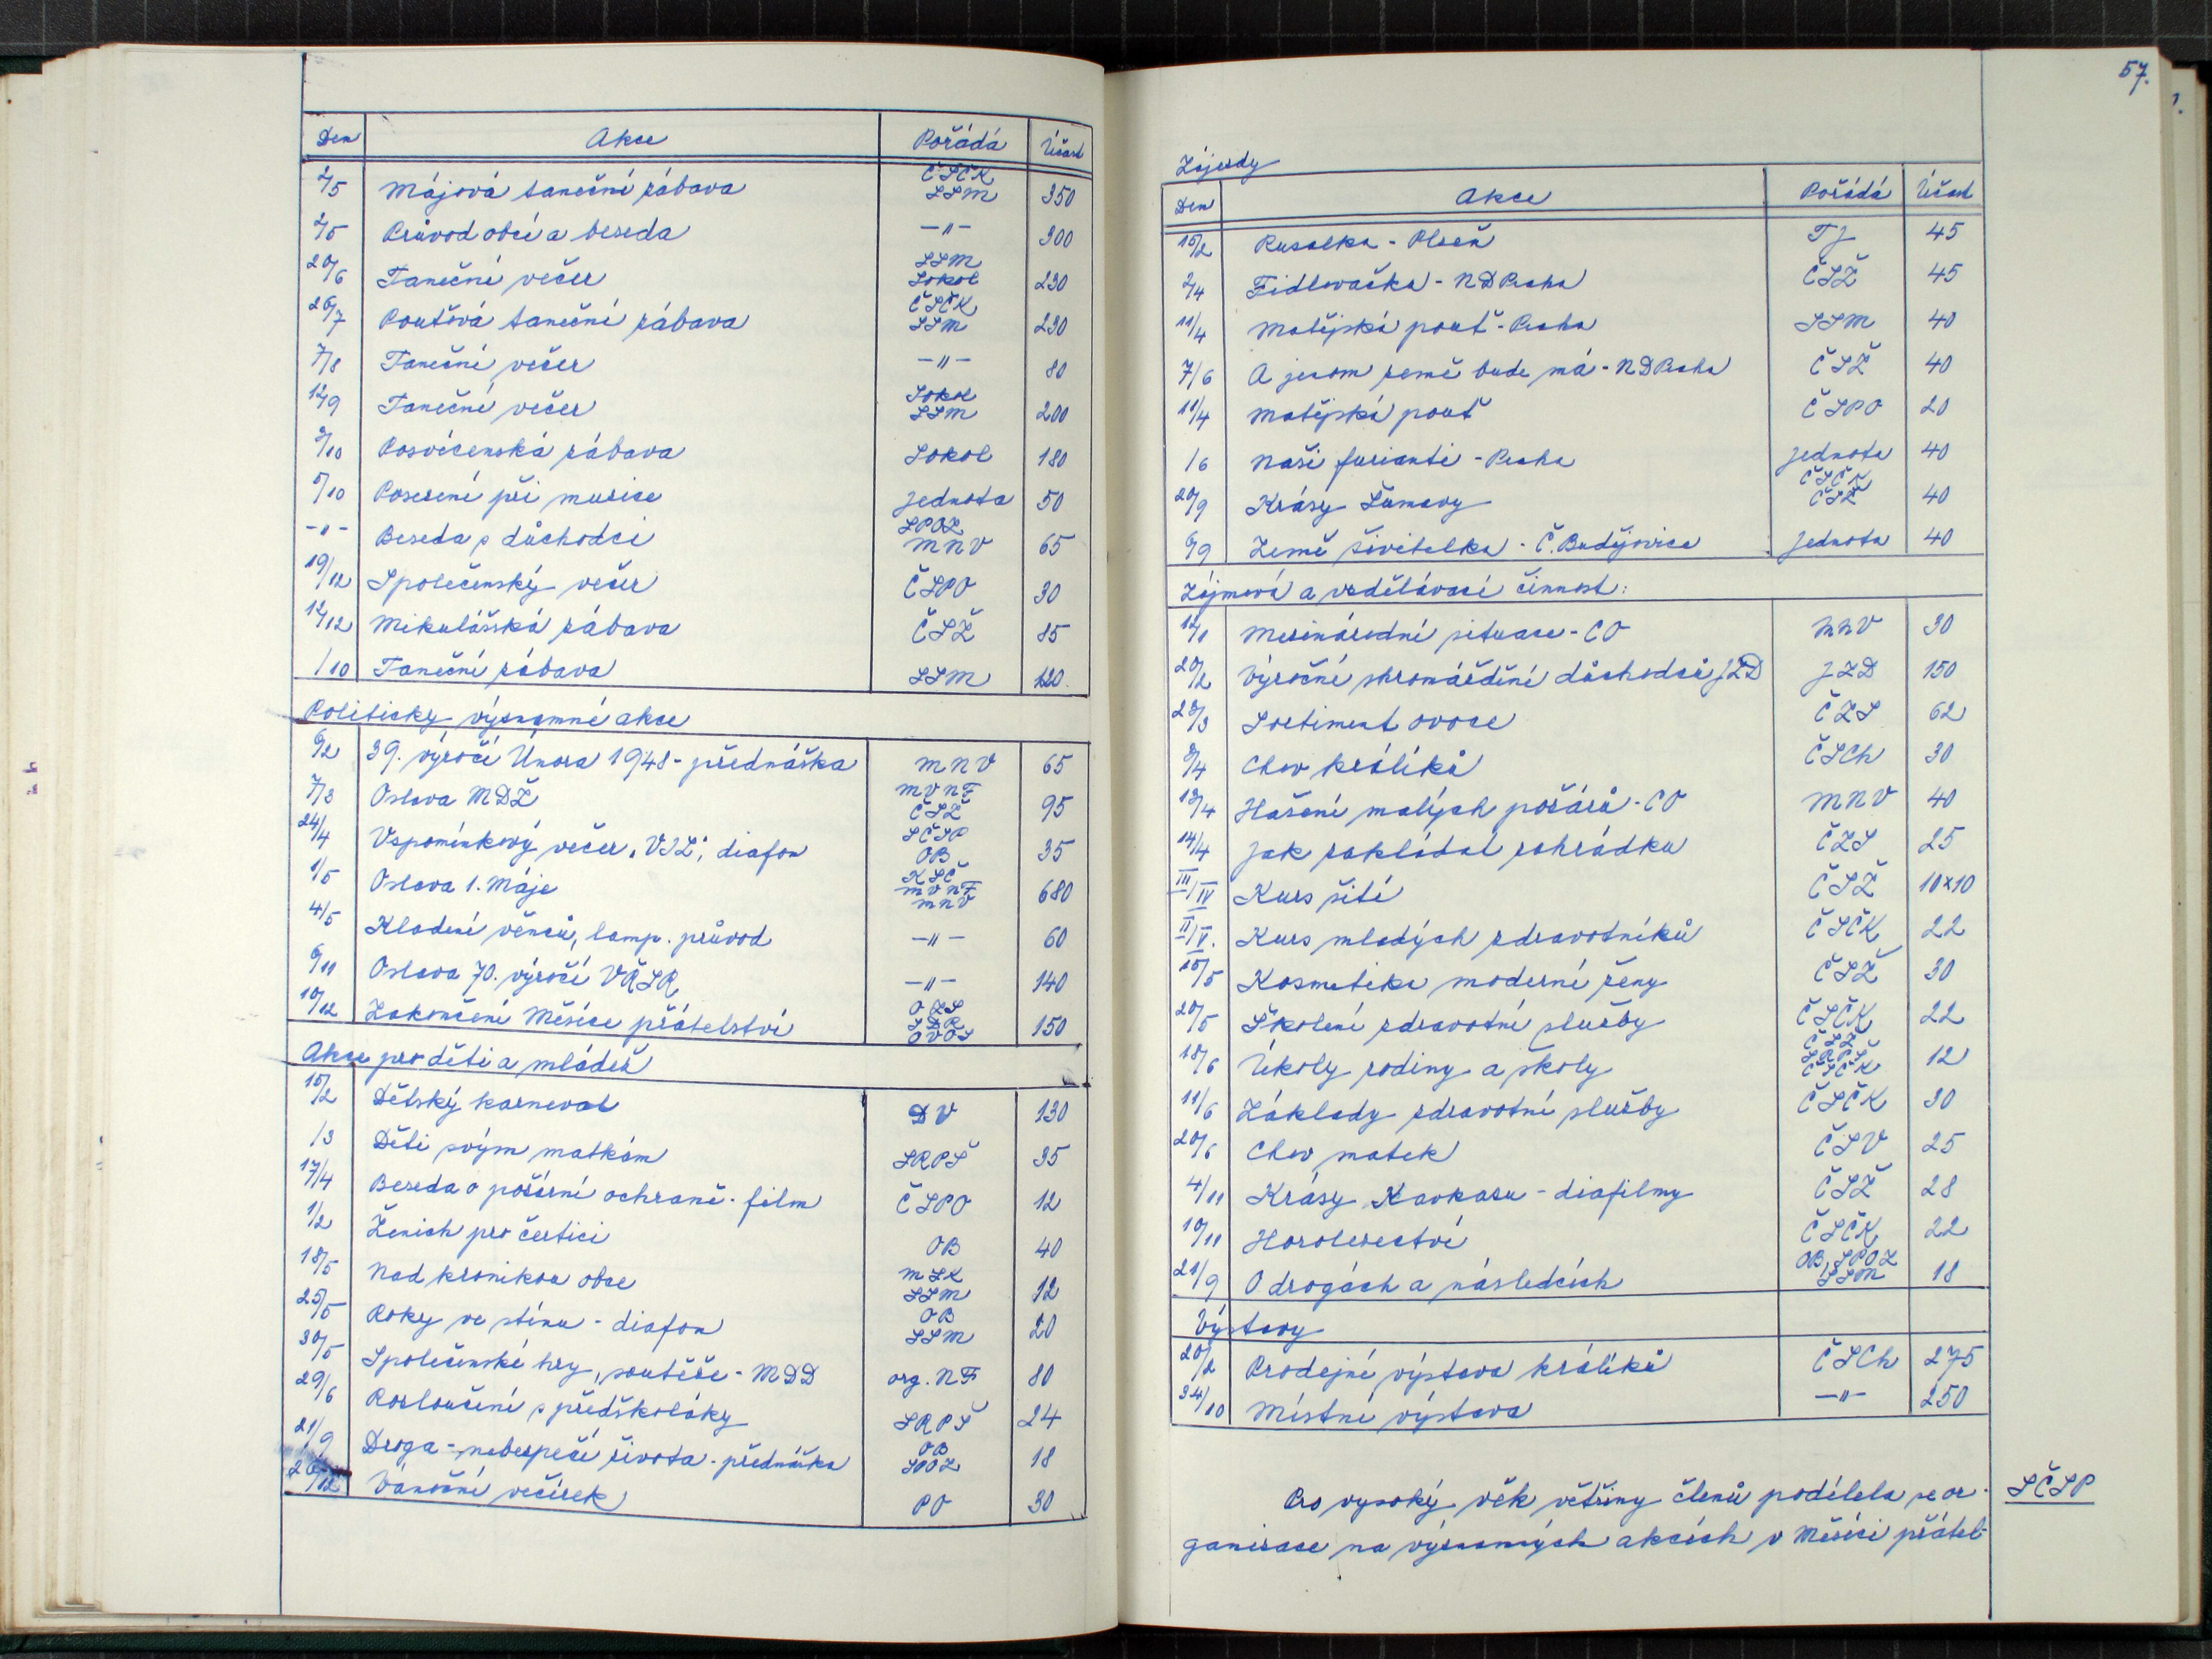 Den Akce Pořádá Účast
2/5 Májová taneční zábava ČSČK SSM 350
2/5 Průvod obcí a beseda —„— 300
20/6 Taneční večer SSM Sokol 230
26/7 Pouťová taneční zábava ČSČK SSM 230
7/8 Taneční večer —„— 80
12/9 Taneční večer Sokol SSM 200
/10 Posvícenská zábava Sokol 180
/10 Posezení při muzice Jednota 50
—„— Beseda s důchodci SPOZ MNV 65
19/12 Společenský večer ČSPO 30
12/12 Mikulášská zábava ČSŽ 85
/10 Taneční zábava SSM 120
Politicky významné akce
6/2 39. výročí Února 1948 - přednáška MNV 65
7/3 Oslava MDŽ MVNF ČSŽ 95
24/4 Vzpomínkový večer „VIL“, diafon SČSP OB 35
1/5 Oslava 1. Máje KSČ MVNF MNV 680
4/5 Kladení věnců, lamp. průvod —„— 60
6/11 Oslava 70. výročí VŘSR —„— 140
10/12 Zakončení Měsíce přátelství 150
Akce pro děti a mládež
15/2 Dětský karneval DV 130
/3 Děti svým matkám SRPŠ 35
17/4 Beseda o požární ochraně - film ČSPO 12
1/2 Ženich pro čertici OB 40
18/5 Nad kronikou obce MLK SSM 12
25/5 Roky ve stínu - diafon OB SSM 20
30/5 Společenské hry, soutěže - MDD org. NF 80
29/6 Rozloučení s předškoláky SRPŠ 24
21/9 Droga - nebezpečí života - přednáška OB SPOZ 18
/12 Vánoční večírek PO 30
57.
Zájezdy
Den Akce Pořádá Účast
15/2 Rusalka - Plzeň TJ 45
2/4 Fidlovačka - ND Praha ČSŽ 45
11/4 Matějská pouť - Praha SSM 40
7/6 A jenom země bude má - ND Praha ČSŽ 40
11/4 Matějská pouť ČSPO 20
/6 Naši furianti - Praha Jednota 40
20/9 Krásy Šumavy ČSČK ČSŽ 40
6/9 Země živitelka - Č. Budějovice Jednota 40
Zájmová a vzdělávací činnost:
12/1 Mezinárodní situace - CO MNV 30
20/2 Výroční shromáždění důchodců JZD JZD 150
28/3 Sortiment ovoce ČZS 62
/4 Chov králíků ČSCh 30
13/4 Hašení malých požárů - CO MNV 40
14/4 Jak zakládat zahrádku ČZS 25
III/IV Kurs šití ČSŽ 10x10
II/V. Kurs mladých zdravotníků ČSČK 22
15/5 Kosmetika moderní ženy ČSŽ 30
20/5 Školení zdravotní služby ČSČK 22
18/6 Úkoly rodiny a školy ČSŽ SRPŠ ČSČK 12
11/6 Základy zdravotní služby ČSČK 30
20/6 Chov matek ČSV 25
4/11 Krásy Kavkazu - diafilmy ČSŽ 28
10/11 Horolezectví ČSČK 22
21/9 O drogách a následcích OB, SPOZ SSM 18
Výstavy
20/2 Prodejní výstava králíků ČSCh 275
/10 Místní výstava —„— 250
Pro vysoký věk většiny členů podílela se or-
SČSP
ganizace na významných akcích v Měsíci přátel-